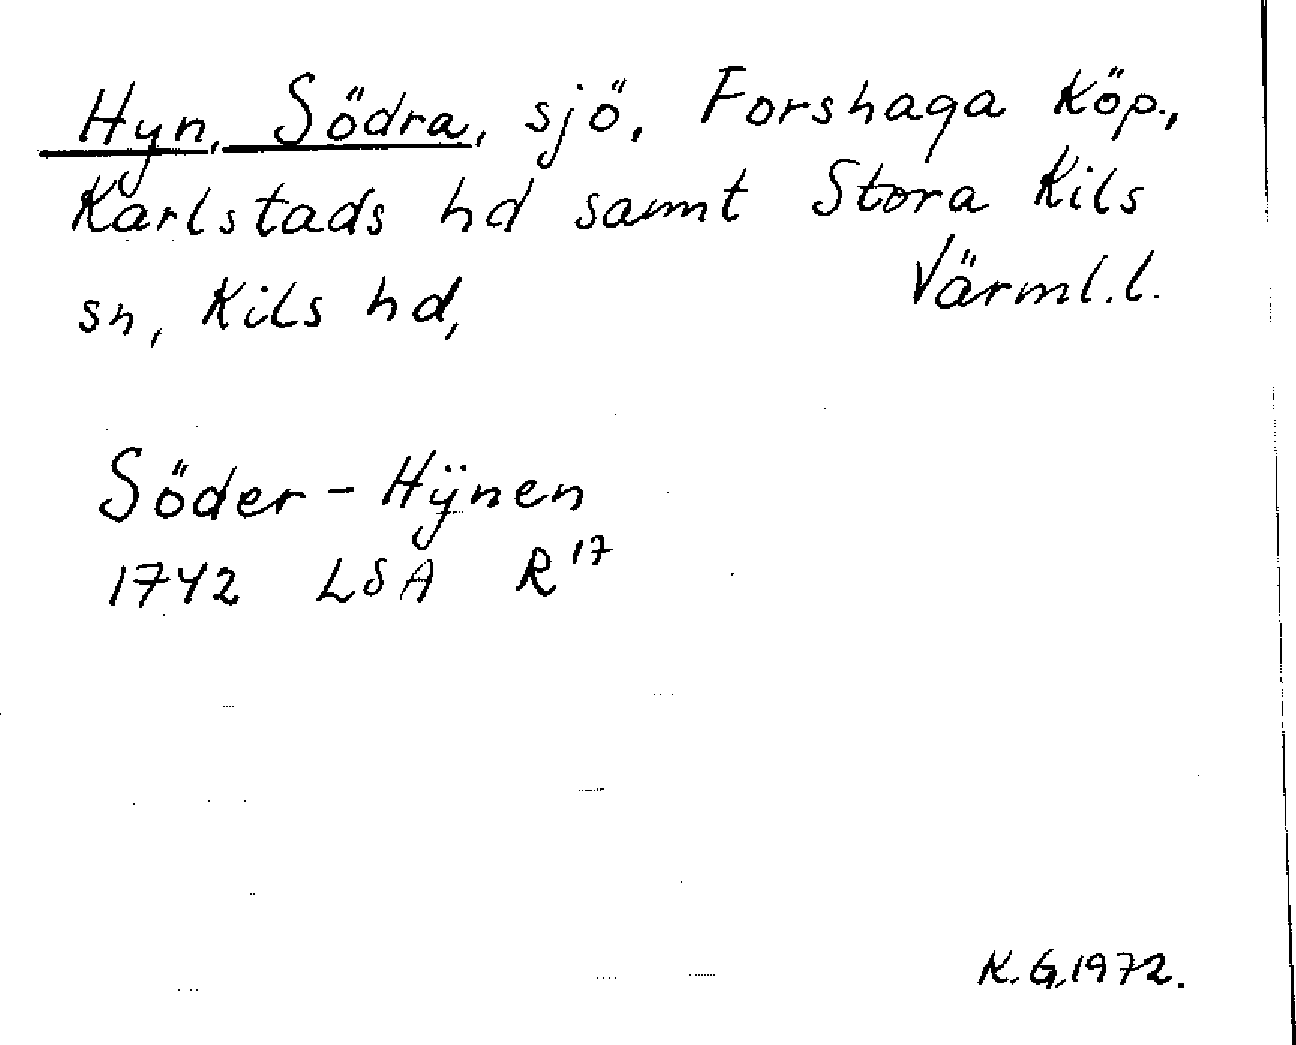 Hyn, Södra, sjö, Forshaga Köp.,
Karlstads hd samt Stora Kils
sn, Kils hd, Värml.l.
Söder-Hÿnen
1742 LSA R¹⁷
K.G.1972.